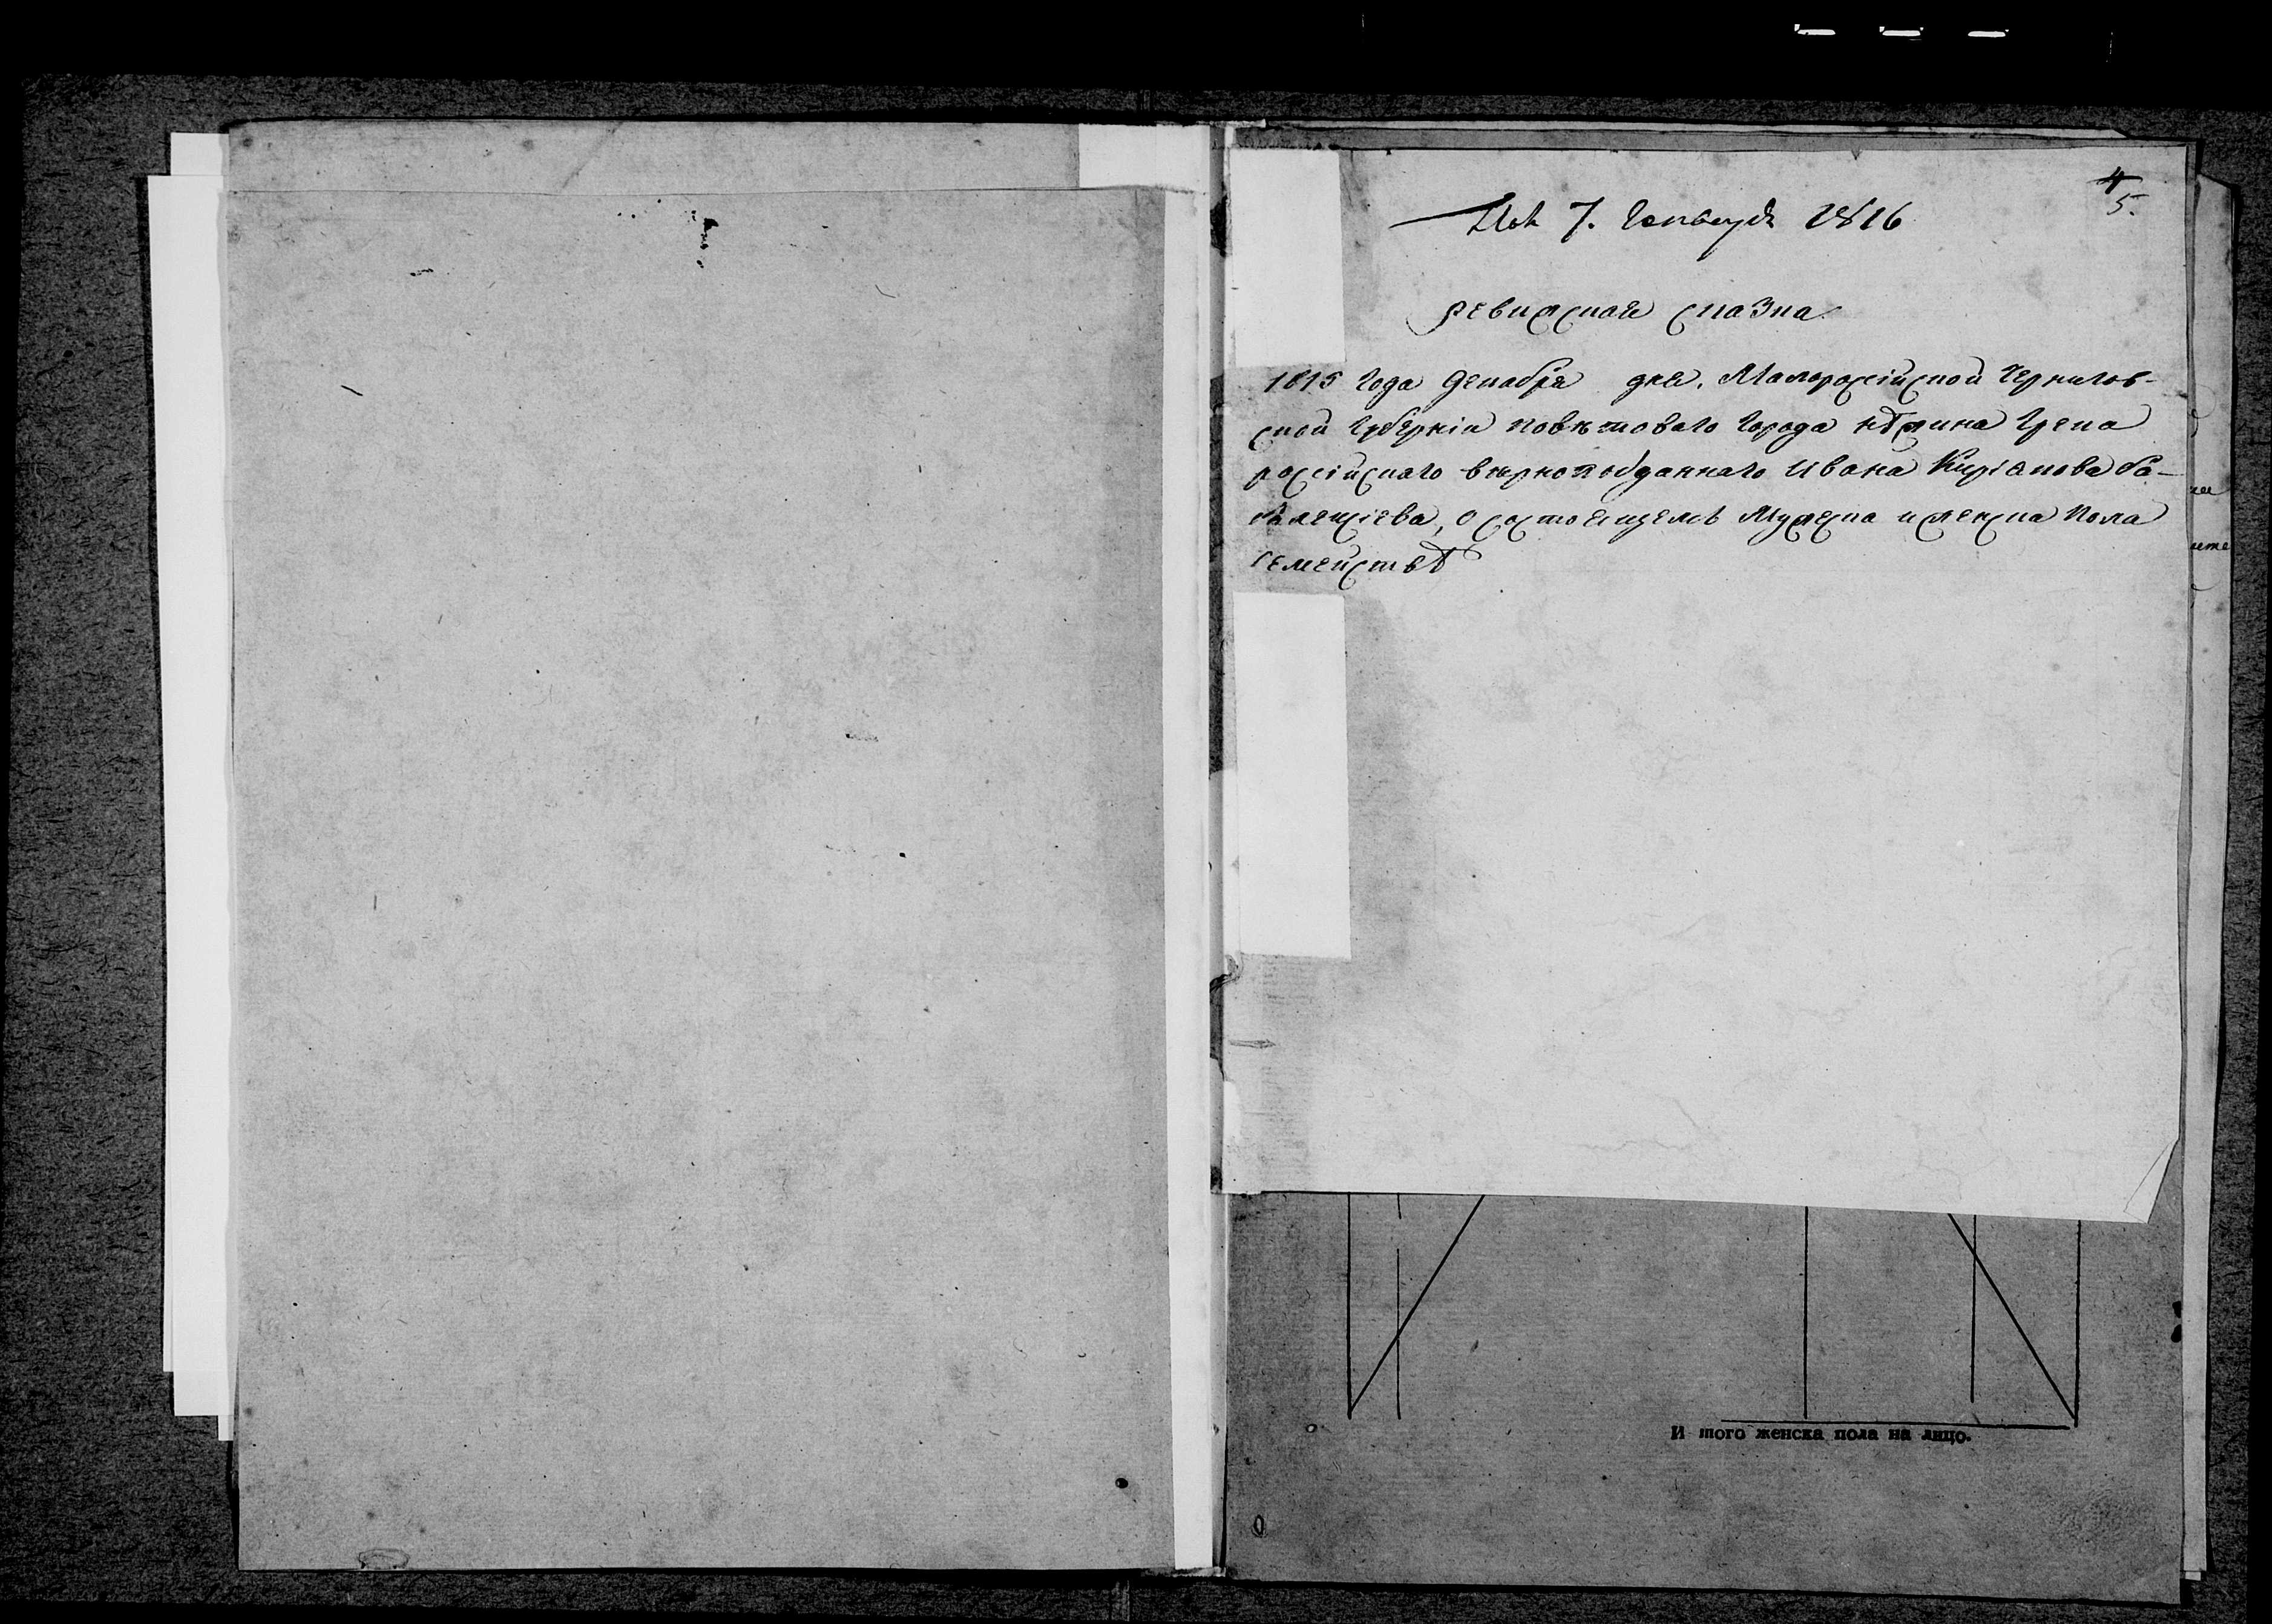 4
5.
7. Генваря 1816
ревижская сказка
1815 года Декабря дня, Малороссійской Чернигов-
ской Губерніи повѣтового города нѣжина Грека
россійскаго вѣрноподданнаго Ивана Киріакова
о состоящемъ Мужеска и женска пола
семействѣ
И того женска пола на лицо.